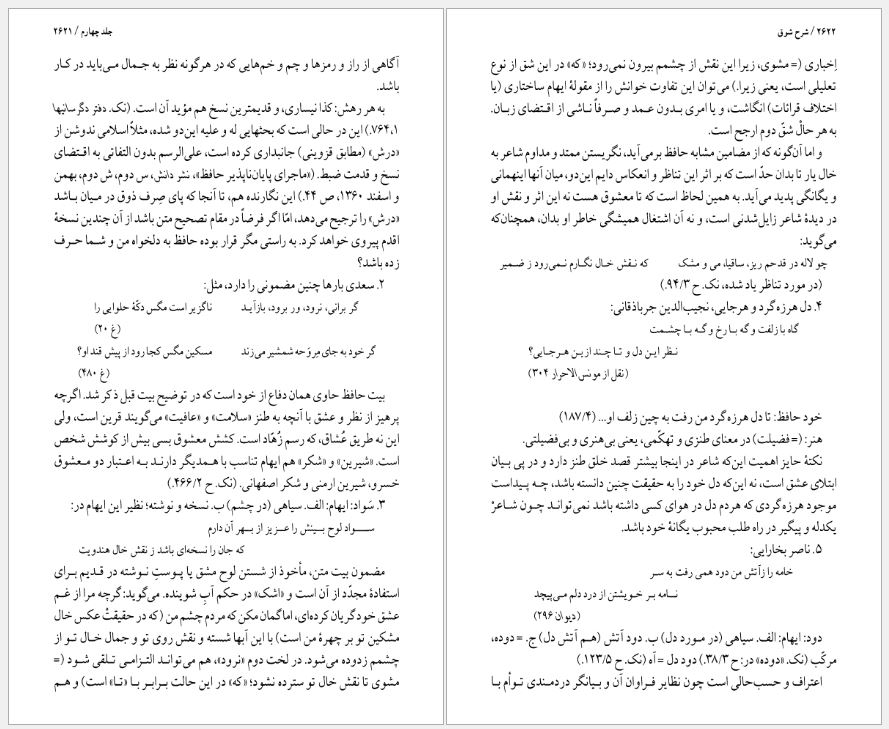 جلد چهارم / ۲۶۲۱
آگاهی از راز و رمزها و چم و خم‌هایی که در هرگونه نظر به جـمال مـی‌باید در کـار
باشد.
به هر رهش: کذا نیساری، و قدیمترین نسخ هم مؤید آن است. (نک. دفتر دگرسانیها
۷۶۴،۱.) این در حالی است که بحثهایی له و علیه این‌دو شده، مثلاً اسلامی ندوشن از
«درش» (مطابق قزوینی) جانبداری کرده است، علی‌الرسم بدون التفاتی به اقـتضای
نسخ و قدمت ضبط. («ماجرای پایان‌ناپذیر حافظ»، نشر دانش، س دوم، ش دوم، بهمن
و اسفند ۱۳۶۰، ص ۴۴.) این نگارنده هم، تا آنجا که پای صِرف ذوق در مـیان بـاشد
«درش» را ترجیح می‌دهد، امّا اگر فرضاً در مقام تصحیح متن باشد از آن چندین نسخهٔ
اقدم پیروی خواهد کرد. به راستی مگر قرار بوده حافظ به دلخواه من و شـما حـرف
زده باشد؟
۲. سعدی بارها چنین مضمونی را دارد، مثل:
گر برانی، نرود، ور برود، بازآیـد ناگزیر است مگس دکّهٔ حلوایی را
(غ ۲۰)
گر خود به جای مِروَحه شمشیر می‌زند مسکین مگس کجا رود از پیش قند او؟
(غ ۴۸۰)
بیت حافظ حاوی همان دفاع از خود است که در توضیح بیت قبل ذکر شد. اگرچه
پرهیز از نظر و عشق با آنچه به طنز «سلامت» و «عافیت» می‌گویند قرین است، ولی
این نه طریق عُشاق، که رسم زُهّاد است. کشش معشوق بسی بیش از کوشش شخص
است. «شیرین» و «شکر» هم ایهام تناسب با هـمدیگر دارنـد بـه اعـتبار دو مـعشوق
خسرو، شیرین ارمنی و شکر اصفهانی. (نک. ح ۴۶۶/۲.)
۳. سَواد: ایهام: الف. سیاهی (در چشم) ب. نسخه و نوشته؛ نظیر این ایهام در:
ســـــواد لوح بـــینش را عـــزیز از بـــهر آن دارم
که جان را نسخه‌ای باشد ز نقش خال هندویت
مضمون بیت متن، مأخوذ از شستن لوح مشق یا پـوستِ نـوشته در قـدیم بـرای
استفادهٔ مجدّد از آن است و «اشک» در حکم آبِ شوینده. می‌گوید: گرچه مرا از غـم
عشق خود گریان کرده‌ای، اما گمان مکن که مردم چشم من (که در حقیقتْ عکس خال
مشکین تو بر چهرهٔ من است) با این آبها شسته و نقش روی تو و جمال خـال تـو از
چشمم زدوده می‌شود. در لخت دوم «نرود»، هم می‌توانـد التزامـی تـلقی شـود (=
مشوی تا نقش خال تو سترده نشود؛ «که» در این حالت بـرابـر بـا «تـا» است) و هـم
۲۶۲۲ / شرح شوق
إخباری (= مشوی، زیرا این نقش از چشمم بیرون نمی‌رود؛ «که» در این شق از نوع
تعلیلی است، یعنی زیرا.) می‌توان این تفاوت خوانش را از مقولهٔ ایهام ساختاری (یا
اختلاف قرائات) انگاشت، و یا امری بـدون عـمد و صـرفاً نـاشی از اقـتضای زبـان.
به هر حالْ شقّ دوم ارجح است.
و اما آن‌گونه که از مضامین مشابه حافظ برمی‌آید، نگریستن ممتد و مداوم شاعر به
خال یار تا بدان حدّ است که بر اثر این تناظر و انعکاس دایم این‌دو، میان آنها اینهمانی
و یگانگی پدید می‌آید. به همین لحاظ است که تا معشوق هست نه این اثر و نقش او
در دیدهٔ شاعر زایل‌شدنی است، و نه آن اشتغال همیشگی خاطر او بدان، همچنان‌که
می‌گوید:
چو لاله در قدحم ریز، ساقیا، می و مشک که نـقش خـال نگـارم نـمی‌رود ز ضـمیر
(در مورد تناظر یاد شده، نک. ح ۹۴/۳.)
۴. دل هرزه‌گرد و هرجایی، نجیب‌الدین جرباذقانی:
گاه با زلفت و گه بـا رخ و گـه بـا چشـمت
نـظر ایـن دل و تـا چـند از یـن هـرجـایی؟
(نقل از مونس‌الاحرار ۳۰۴)
خود حافظ: تا دل هرزه‌گرد من رفت به چین زلف او... (۱۸۷/۴)
هنر: (= فضیلت) در معنای طنزی و تهکّمی، یعنی بی‌هنری و بی‌فضیلتی.
نکتهٔ حایز اهمیت این‌که شاعر در اینجا بیشتر قصد خلق طنز دارد و در پی بـیان
ابتلای عشق است، نه این‌که دل خود را به حقیقت چنین دانسته باشد، چـه پـیداست
موجود هرزه‌گردی که هردم دل در هوای کسی داشته باشد نمی‌توانـد چـون شـاعرْ
یکدله و پیگیر در راه طلب محبوب یگانهٔ خود باشد.
۵. ناصر بخارایی:
خامه را ز آتش من دود همی رفت به سـر
نـامه بـر خـویشتن از درد دلم مـی‌پیچد
(دیوان ۲۹۶)
دود: ایهام: الف. سیاهی (در مـورد دل) ب. دود آتش (هـم آتش دل) ج. = دوده،
مرکّب (نک. «دوده» در: ح ۳۸/۳.) دود دل = آه (نک. ح ۱۲۳/۵.)
اعتراف و حسب‌حالی است چون نظایر فـراوان آن و بـیانگر دردمـندی تـوأم بـا